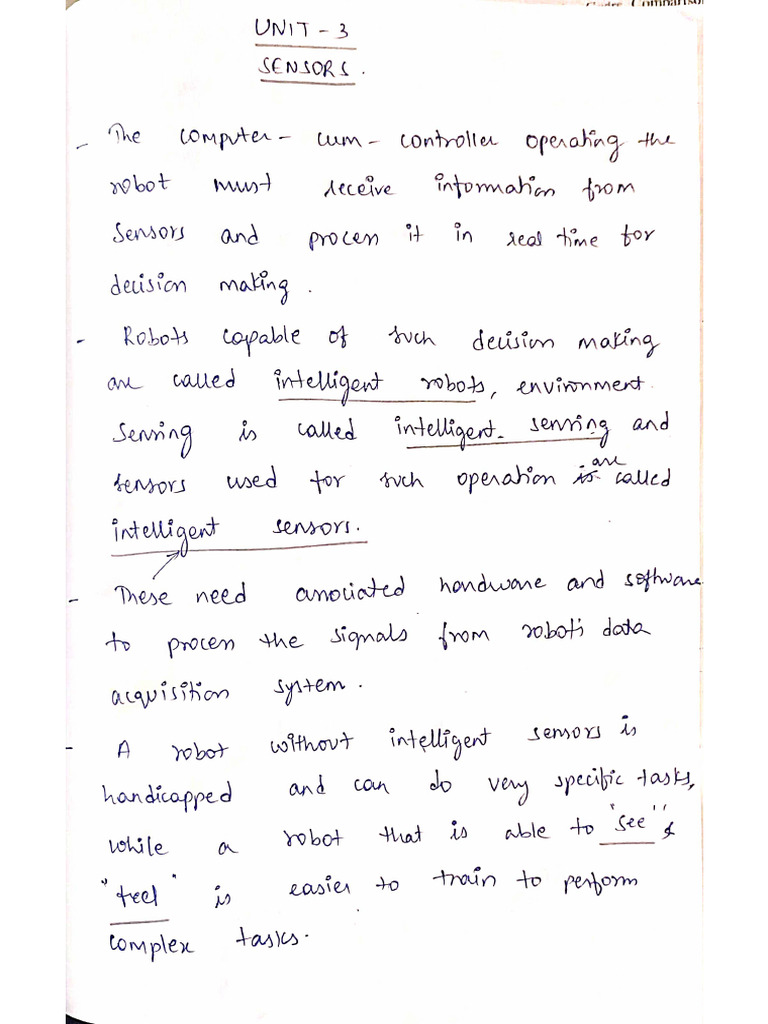 UNIT - 3
SENSORS.
- The computer - cum - controller operating the
robot must receive information from
Sensors and process it in real time for
decision making.
- Robots capable of such decision making
are called intelligent robots, environment
sensing is called intelligent sensing and
sensors used for such operation are called
intelligent sensors.
- These need associated hardware and software
to process the signals from robots data
acquisition system.
- A robot without intelligent sensors is
handicapped and can do very specific tasks,
while a robot that is able to "see" &
"feel" is easier to train to perform
complex tasks.